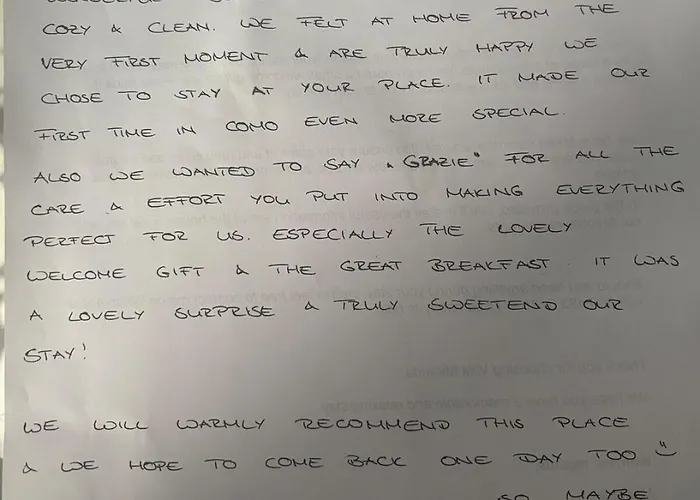 COZY & CLEAN. WE FELT AT HOME FROM THE
VERY FIRST MOMENT & ARE TRULY HAPPY WE
CHOSE TO STAY AT YOUR PLACE. IT MADE OUR
FIRST TIME IN COMO EVEN MORE SPECIAL.
ALSO WE WANTED TO SAY "GRAZIE" FOR ALL THE
CARE & EFFORT YOU PUT INTO MAKING EVERYTHING
PERFECT FOR US. ESPECIALLY THE LOVELY
WELCOME GIFT & THE GREAT BREAKFAST. IT WAS
A LOVELY SURPRISE & TRULY SWEETEND OUR
STAY!
WE WILL WARMLY RECOMMEND THIS PLACE
& WE HOPE TO COME BACK ONE DAY TOO
SO MAYBE